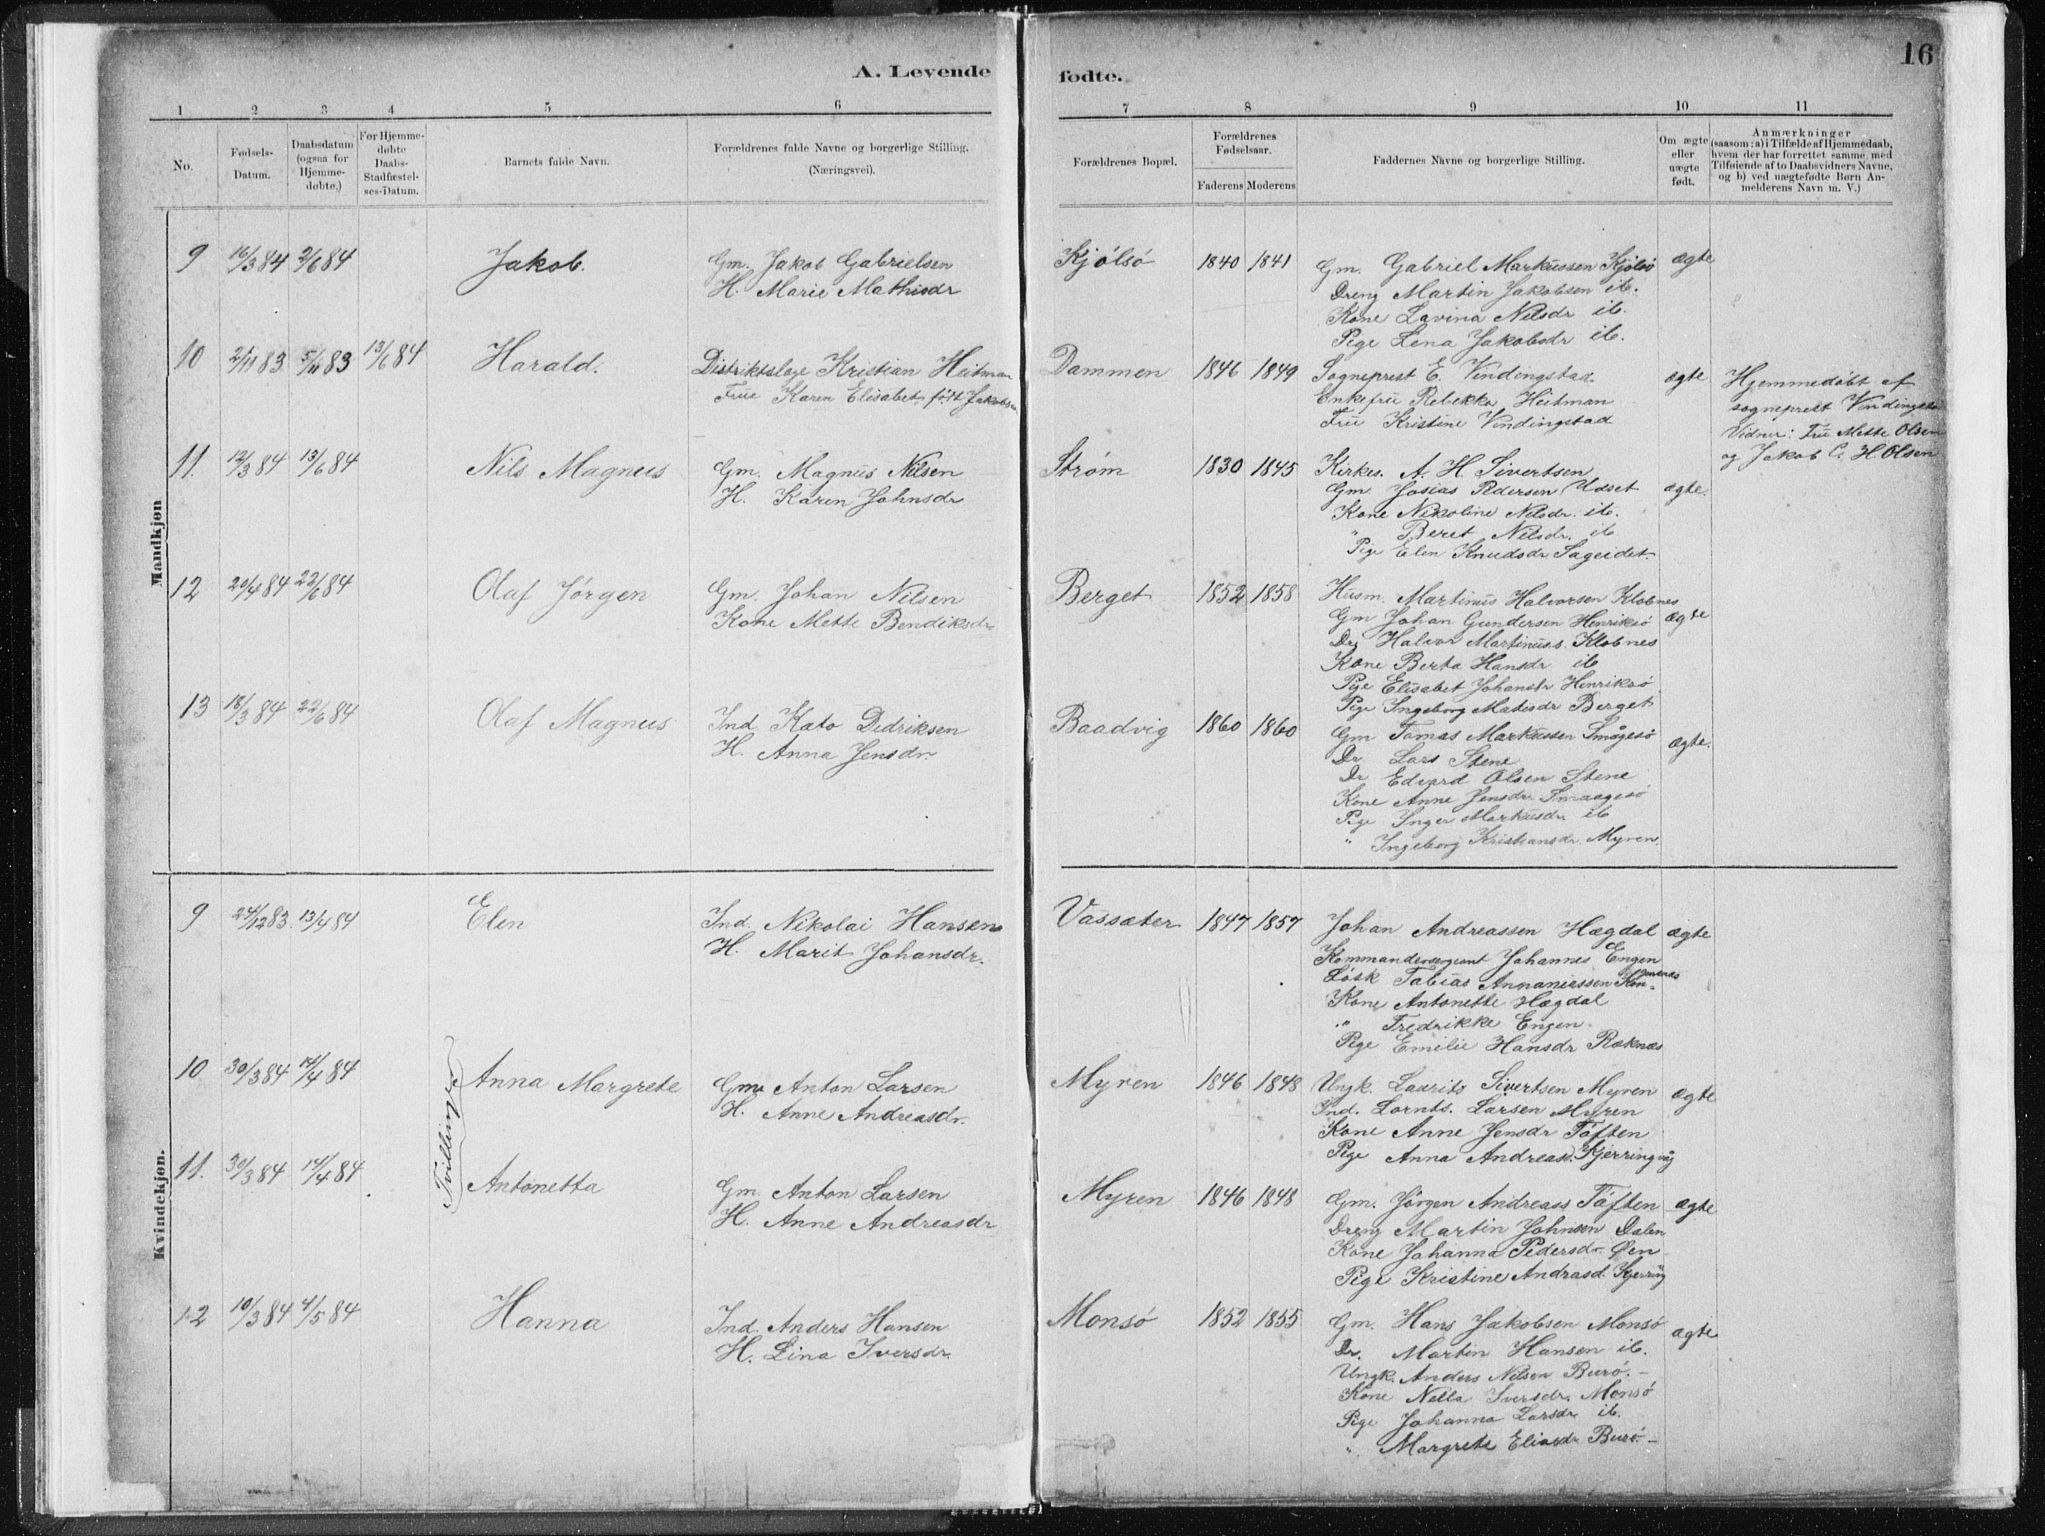 A. Levende fødte.
16
1 2 3 4 5 6 7 8 9 10 11
No.
Fødsels-Datum.
Daabsdatum (ogsaa for Hjemmedøbte.)
For Hjemmedøbte Daabs-Stadfæstelses-Datum.
Barnets fulde Navn.
Forældrenes fulde Navne og borgerlige Stilling. (Næringsvei).
Forældrenes Bopæl.
Forældrenes Fødselsaar.
Faderens Moderens
Faddernes Navne og borgerlige Stilling.
Om ægte eller uægte født.
Anmærkninger (saasom: a) i Tilfælde af Hjemmedaab, hvem der har forrettet samme, med Tilføiende af to Daabsvidners Navne, og b) ved uægtefødte Børn Anmelderens Navn m. V.)
Mandkjøn
9 16/3 84 2/6 84 Jakob.
Gm. Jakob Gabrielsen
H. Marie Mathisdr
Kjølsø 1840 1841
Gm. Gabriel Markussen Kjølsø
Dreng Martin Jakobsen ib.
Kone Lavina Nilsdr ib.
Pige Lena Jakobsdr ib.
ægte
10 2/11 83 5/11 83 13/6 84 Harald.
Distriktslæge Kristian Heitman
Frue Karen Elisabet født Jakobsen
Dammen 1846 1849
Sogneprest E. Vindingstad
Enkefru Rebekka Heitman
Fru Kristine Vindingstad
ægte
Hjemmedøbt af
sogneprest Vindingstad
Vidner: Fru Mette Olsen
og Jakob C. H. Olsen
11. 12/3 84 13/6 84 Nils Magnus
Gm. Magnus Nilsen
H. Karen Johnsdr
Strøm 1830 1845
Kirkes. A. H. Sivertsen
Gm. Josias Pedersen Udset
Kone Nikoline Nilsdr. ib.
" Beret Nilsdr. ib
Pige Elen Knudsdr Sageidet.
ægte.
12 20/4 84 22/6 84 Olaf Jørgen
Gm. Johan Nilsen
Kone Mette Bendiksdr
Berget 1852 1858
Husm. Martinus Halvorsen Klobnes
Gm Johan Gundersen Henriksø
Dr, Halvor Martinus. Klobnes
Kone Berta Hansdr ib
Pige Elisabet Johansdr Henriksø
Pige Ingeborg Matisdr Berget
ægte
13 18/3 84 22/6 84 Olaf Magnus
Ind. Kato Didriksen
H. Anna Jensdr.
Baadvig 1860 1860
Gm Tomas Markussen Smågesø
Dr. Lars Stene
Dr Edvard Olsen Stene
Kone Anne Jensdr. Smaagesø
Pige Inger Markusdr. ib
" Ingeborg Kristiansdr. Myren.
ægte.
Kvindekjøn.
9 24/12 83. 13/4 84 Elen
Ind. Nikolai Hansen
H. Marit Johansdr.
Vassæter 1847 1857
Johan Andreassen Hægdal
Kommandersergeant Johannes Engen
Løsk Tobias Annaniassen
Kone Antonette Hægdal
" Fredrikke Engen
Pige Emilie Hansdr Røknæs
ægte
Tvillinger
10 30/3 84 14/4 84 Anna Margrete
Gm. Anton Larsen
H. Anne Andreasdr.
Myren 1846 1848
Ungk. Laurits Sivertsen Myren
Ind. Lornts. Larsen Myren
Kone Anne Jensdr Tøften
Pige Anna Andreasd. Kjerringvig
ægte
11. 30/3 84 14/4 84 Antonetta
Gm. Anton Larsen
H. Anne Andreasdr
Myren 1846 1848
Gm. Jørgen Andreass Tøften
Dreng Martin Johnsen Dalen
Kone Johanna Pedersdr. Øen
Pige Kristine Andrasd. Kjerrvig
ægte
12 10/3 84 4/5 84 Hanna
Ind. Anders Hansen
H. Lina Iversdr.
Monsø 1852 1855
Gm. Hans Jakobsen Monsø
Dr. Martin Hansen ib.
Ungk. Anders Nilsen Burø.
Kone Nella Iversdr. Monsø
Pige Johanna Larsdr ib.
" Margrete Eliasdr Burø.
ægte